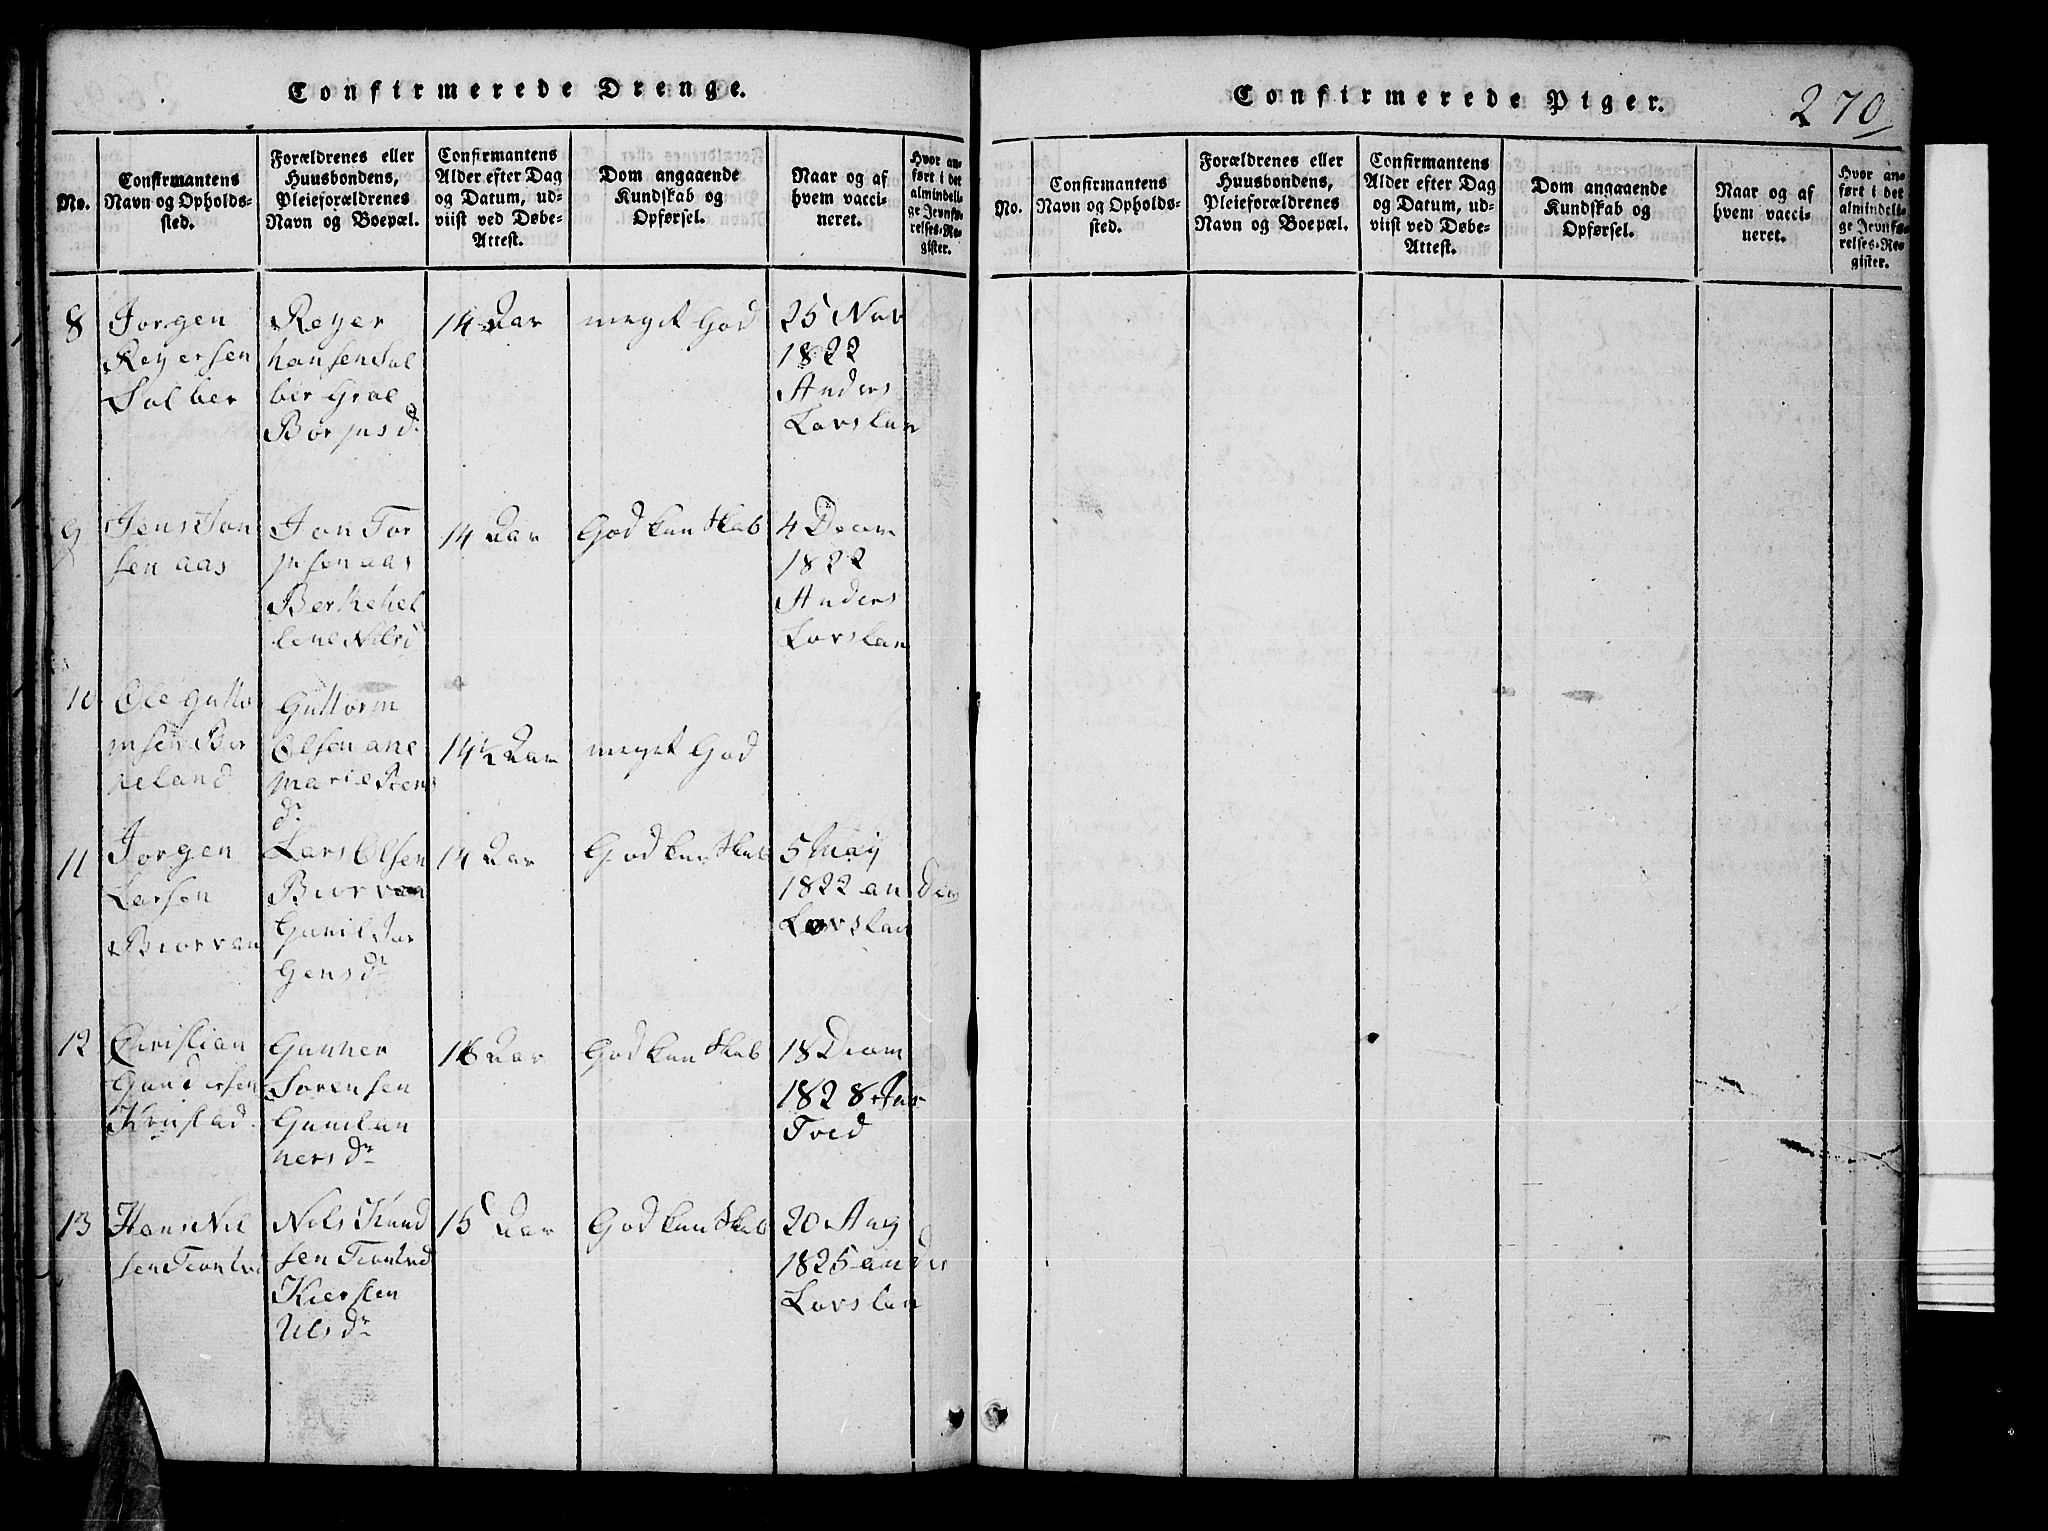 Confirmerede Drenge.
No.
Confirmantens
Navn og Opholds-
sted.
Forældrenes eller
Huusbondens,
Pleieforældrenes
Navn og Boepæl.
Confirmantens
Alder efter Dag
og Datum, ud-
viist ved Døbe-
Attest.
Dom angaaende
Kundskab og
Opførsel.
Naar og af
hvem vacci-
neret.
Hvor an-
ført i det
almindeli-
ge Jevnfø-
relses-Re-
gister.
8
Jorgen
Reyersen
Solber
Reyer
hansen Sol
ber
14 Aar
meget God
25 Nov
1822
Anders
Lovslan
9
Jens Jon
sen aas
Jon Tor
jusen aas
14 Aar
God kun Skab
4 Decm
1822
Anders
Lovslan
10
Ole Gutto
msen Bor
neland
Guttorm
Olsen ane
marie
dr
14½ Aar
meget God
11
Jorgen
Larsen
Biorvan
Lars Olsen
Biorvan
Gunil Jor
Gens dr
14 Aar
God kun Skab
5 May
1822 an Ders
Lovslan
12
Christian
Gundersen
Gunner
Sorensen
ners dr
16 Aar
God kun Skab
18 Decm
1828
Tved
13
Hans Nil
sen
Nils Knud
sen
Kiersten
Nils dr
15 Aar
God kun Skab
20 Aug
1825 an Ders
Lovslan
Confirmerede Piger.
270
No.
Confirmantens
Navn og Opholds-
sted.
Forældrenes eller
Huusbondens,
Pleieforældrenes
Navn og Boepæl.
Confirmantens
Alder efter Dag
og Datum, ud-
viist ved Døbe-
Attest.
Dom angaaende
Kundskab og
Opførsel.
Naar og af
hvem vacci-
neret.
Hvor an-
ført i det
almindeli-
ge Jevnfø-
relses-Re-
gister.